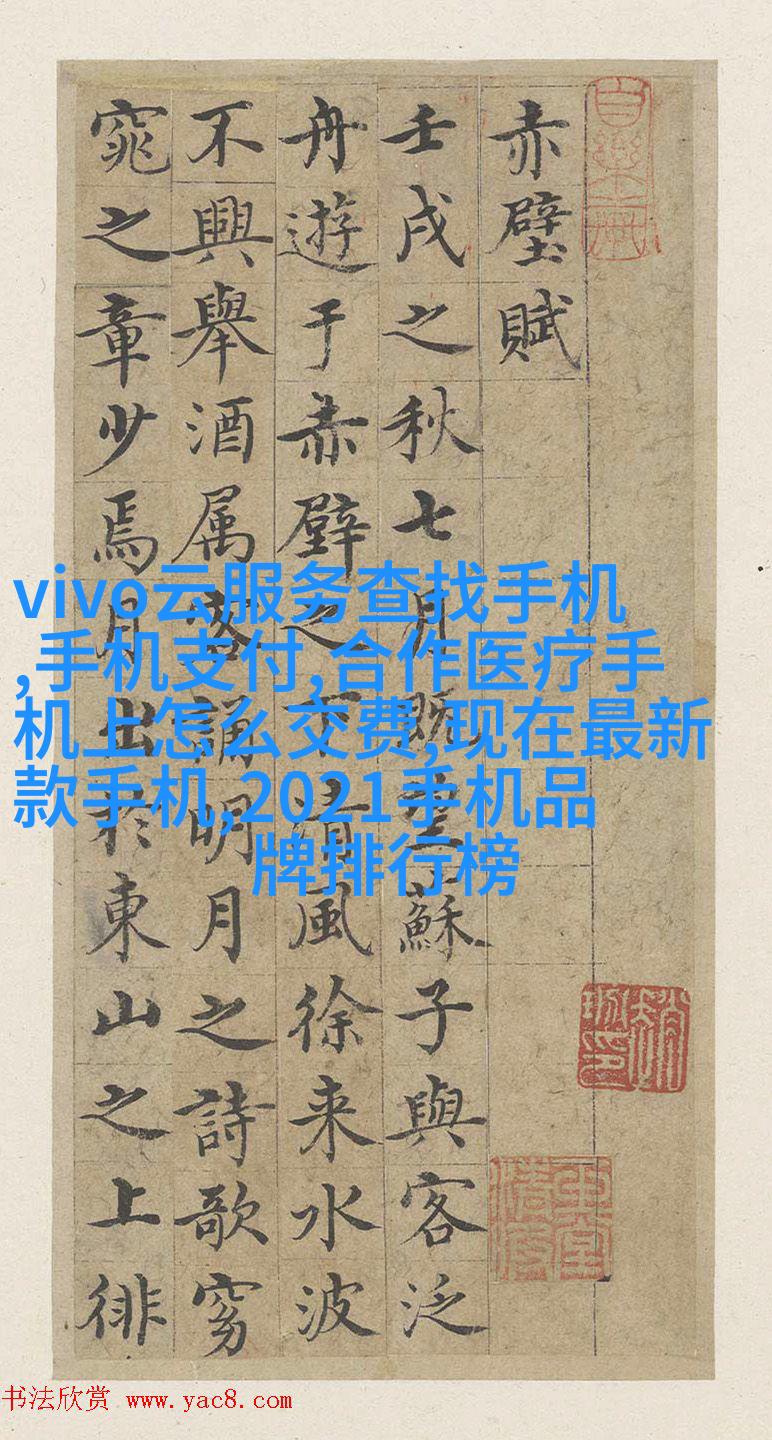 赤壁賦
壬戌之秋七月既望蘇子與客泛
舟遊于赤壁之下清風徐来水波
不興舉酒属客誦明月之詩歌窈
窕之章少焉月出於東山之上徘
vivo云服务查找手机
,手机支付,合作医疗手
机上怎么交费,现在最新
款手机,2021手机品
牌排行榜
书法欣赏 www.yac8.com